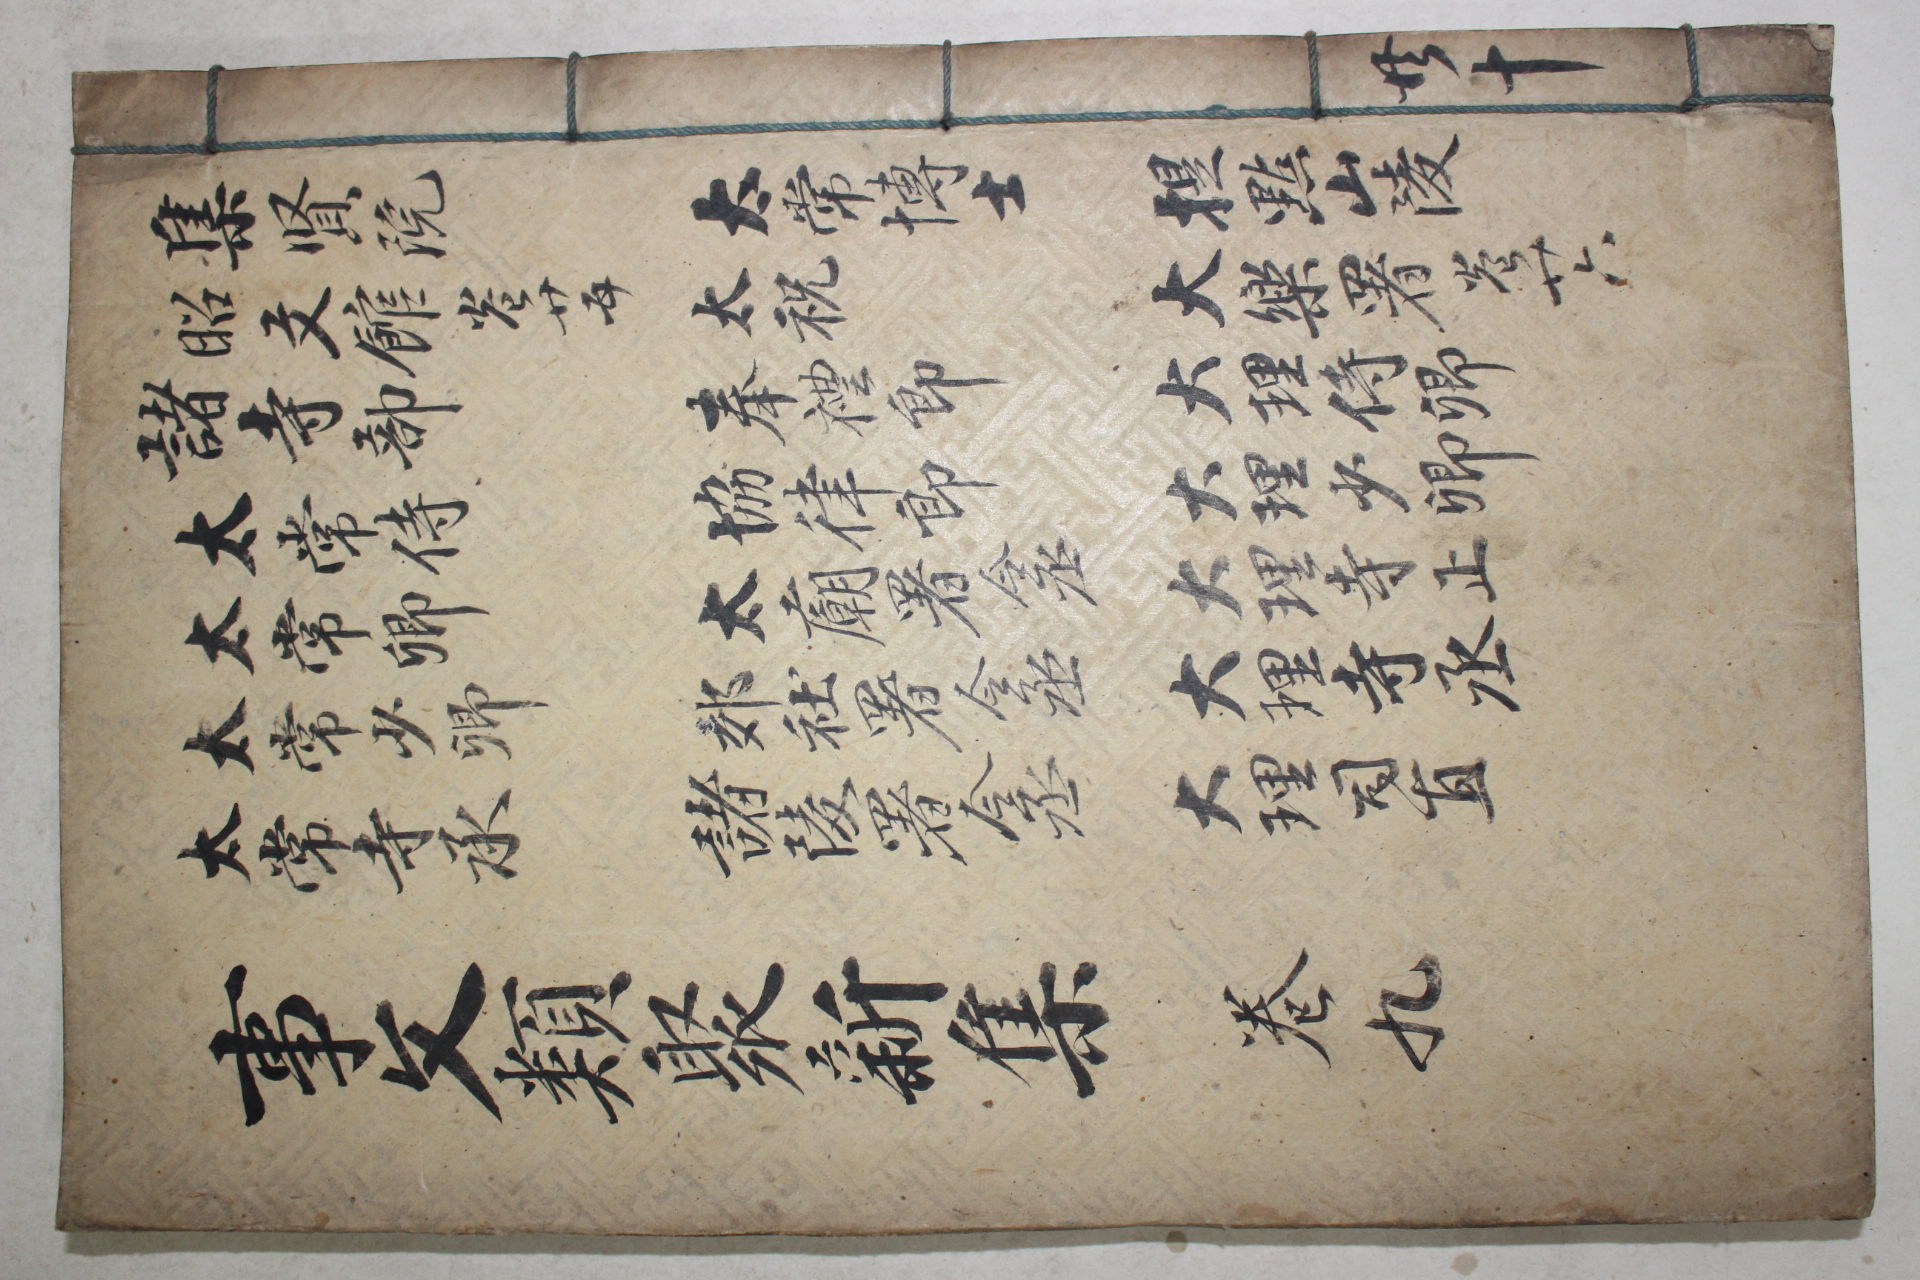 集賢院
昭文館 卷廿五
諸寺部
太常侍
太常卿
太常少卿
太常寺承
太常博士
太祝
奉禮郎
協律郎
太廟署令丞
郊社署令丞
諸陵署令丞
提點山陵
大樂署 卷廿六
大理侍卿
大理少卿
大理寺正
大理寺丞
大理司直
事文類聚新集 卷九
共十